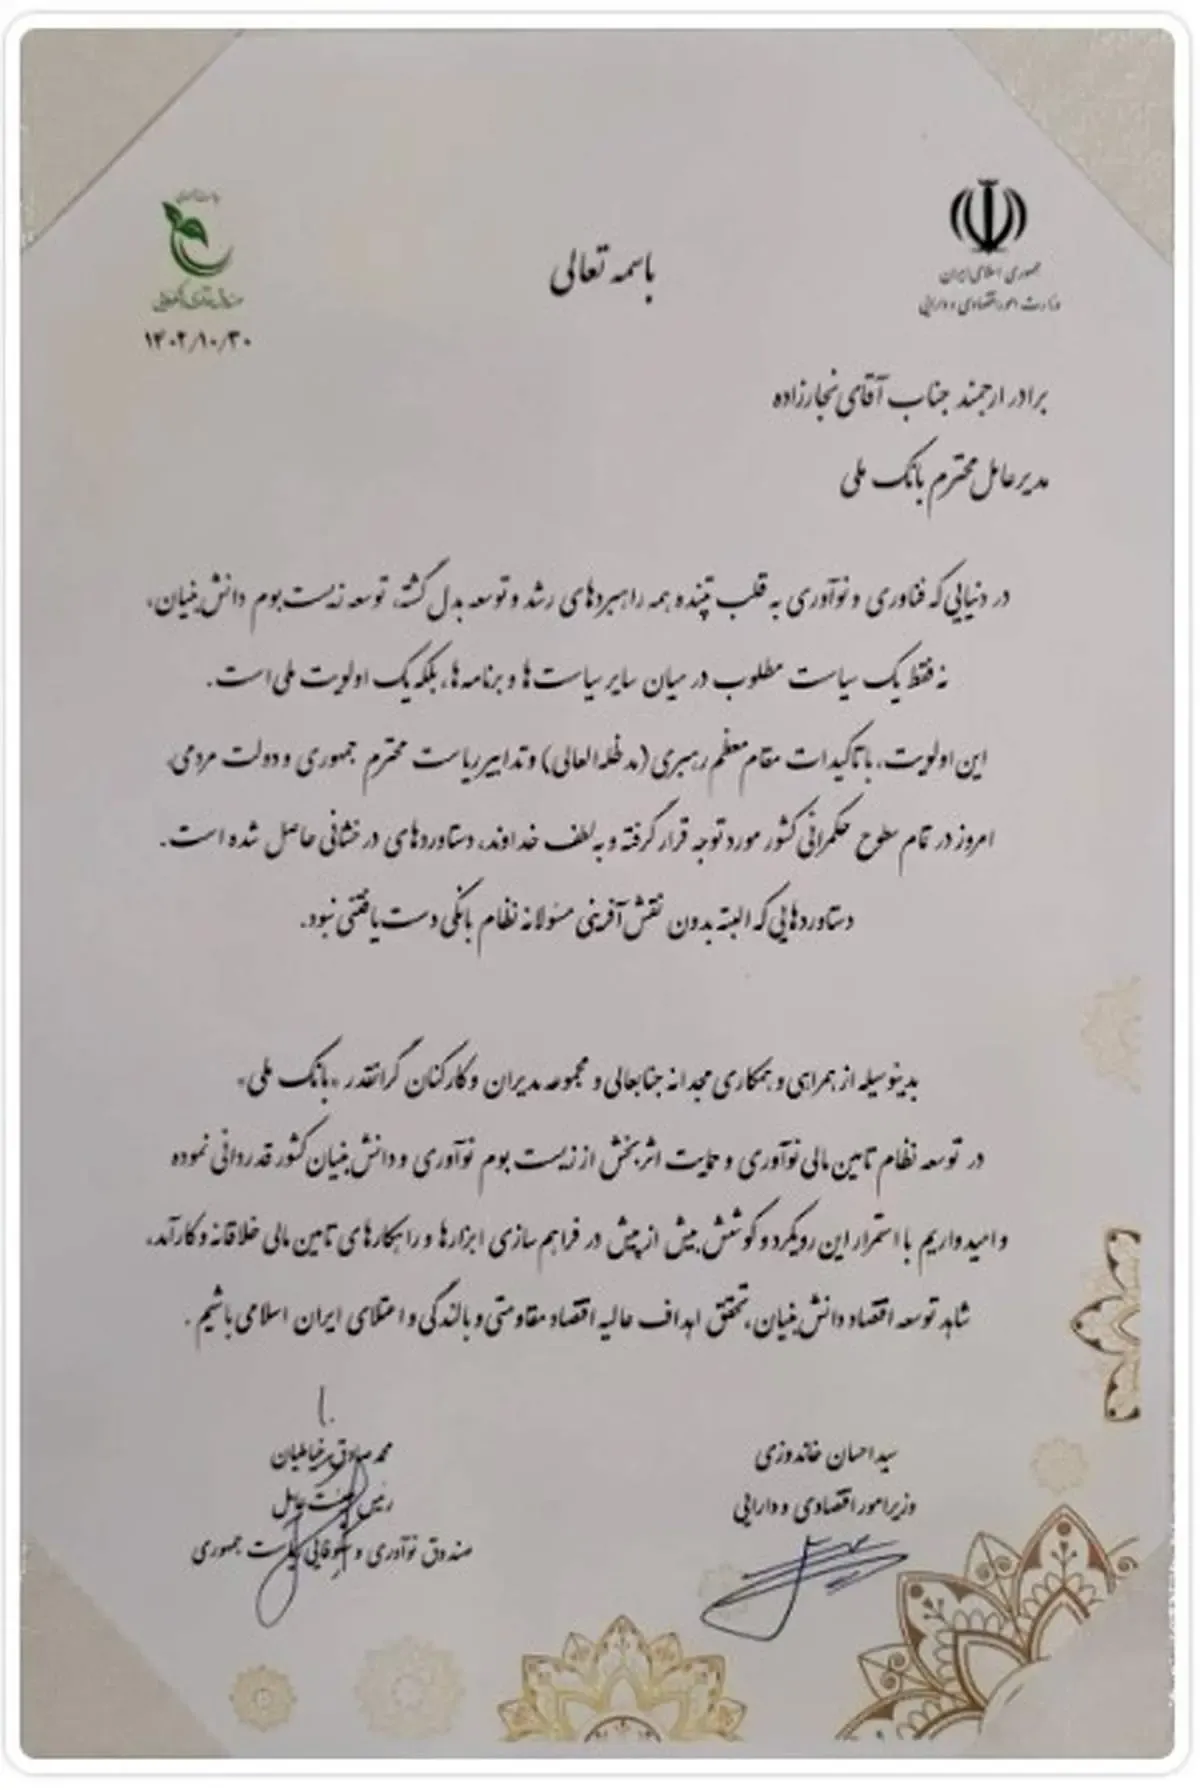 باسمه تعالی
جمهوری اسلامی ایران
وزارت امور اقتصادی و دارایی
ریاست جمهوری
صندوق نوآوری و شکوفایی
۱۴۰۲/۱۰/۳۰
برادر ارجمند جناب آقای نجارزاده
مدیرعامل محترم بانک ملی
در دنیایی که فناوری و نوآوری به قلب تپنده همه راهبردهای رشد و توسعه بدل گشته، توسعه زیست بوم دانش بنیان،
نه فقط یک سیاست مطلوب در میان سایر سیاست ها و برنامه ها، بلکه یک اولویت ملی است.
این اولویت، با تاکیدات مقام معظم رهبری (مد ظله العالی) و تدابیر ریاست محترم جمهوری و دولت مردمی،
امروز در تمام سطوح حکمرانی کشور مورد توجه قرار گرفته و به لطف خداوند، دستاوردهای درخشانی حاصل شده است.
دستاوردهایی که البته بدون نقش آفرینی مسئولانه نظام بانکی دست یافتنی نبود.
بدینوسیله از همراهی و همکاری مجدانه جنابعالی و مجموعه مدیران و کارکنان گرانقدر «بانک ملی»
در توسعه نظام تامین مالی نوآوری و حمایت اثربخش از زیست بوم نوآوری و دانش بنیان کشور قدردانی نموده
و امیدواریم با استمرار این رویکرد و کوشش بیش از پیش در فراهم سازی ابزارها و راهکارهای تامین مالی خلاقانه و کارآمد،
شاهد توسعه اقتصاد دانش بنیان، تحقق اهداف عالیه اقتصاد مقاومتی و بالندگی و اعتلای ایران اسلامی باشیم.
سید احسان خاندوزی
وزیر امور اقتصادی و دارایی
محمدصادق خیاطیان
رئیس هیئت عامل
صندوق نوآوری و شکوفایی ریاست جمهوری